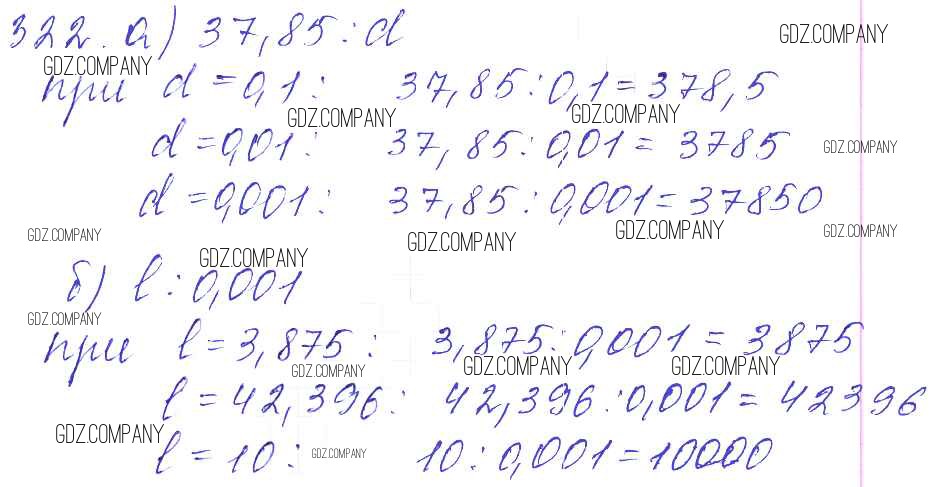 322. а) 37,85 : d
GDZ.COMPANY
GDZ.COMPANY
при d = 0,1 : 37,85 : 0,1 = 378,5
GDZ.COMPANY GDZ.COMPANY
d = 0,01 : 37,85 : 0,01 = 3785
GDZ.COMPANY
d = 0,001 : 37,85 : 0,001 = 37850
GDZ.COMPANY GDZ.COMPANY GDZ.COMPANY GDZ.COMPANY
GDZ.COMPANY
б) l : 0,001
GDZ.COMPANY
при l = 3,875 : 3,875 : 0,001 = 3875
GDZ.COMPANY GDZ.COMPANY GDZ.COMPANY
l = 42,396 : 42,396 : 0,001 = 42396
GDZ.COMPANY
l = 10 : 10 : 0,001 = 10000
GDZ.COMPANY